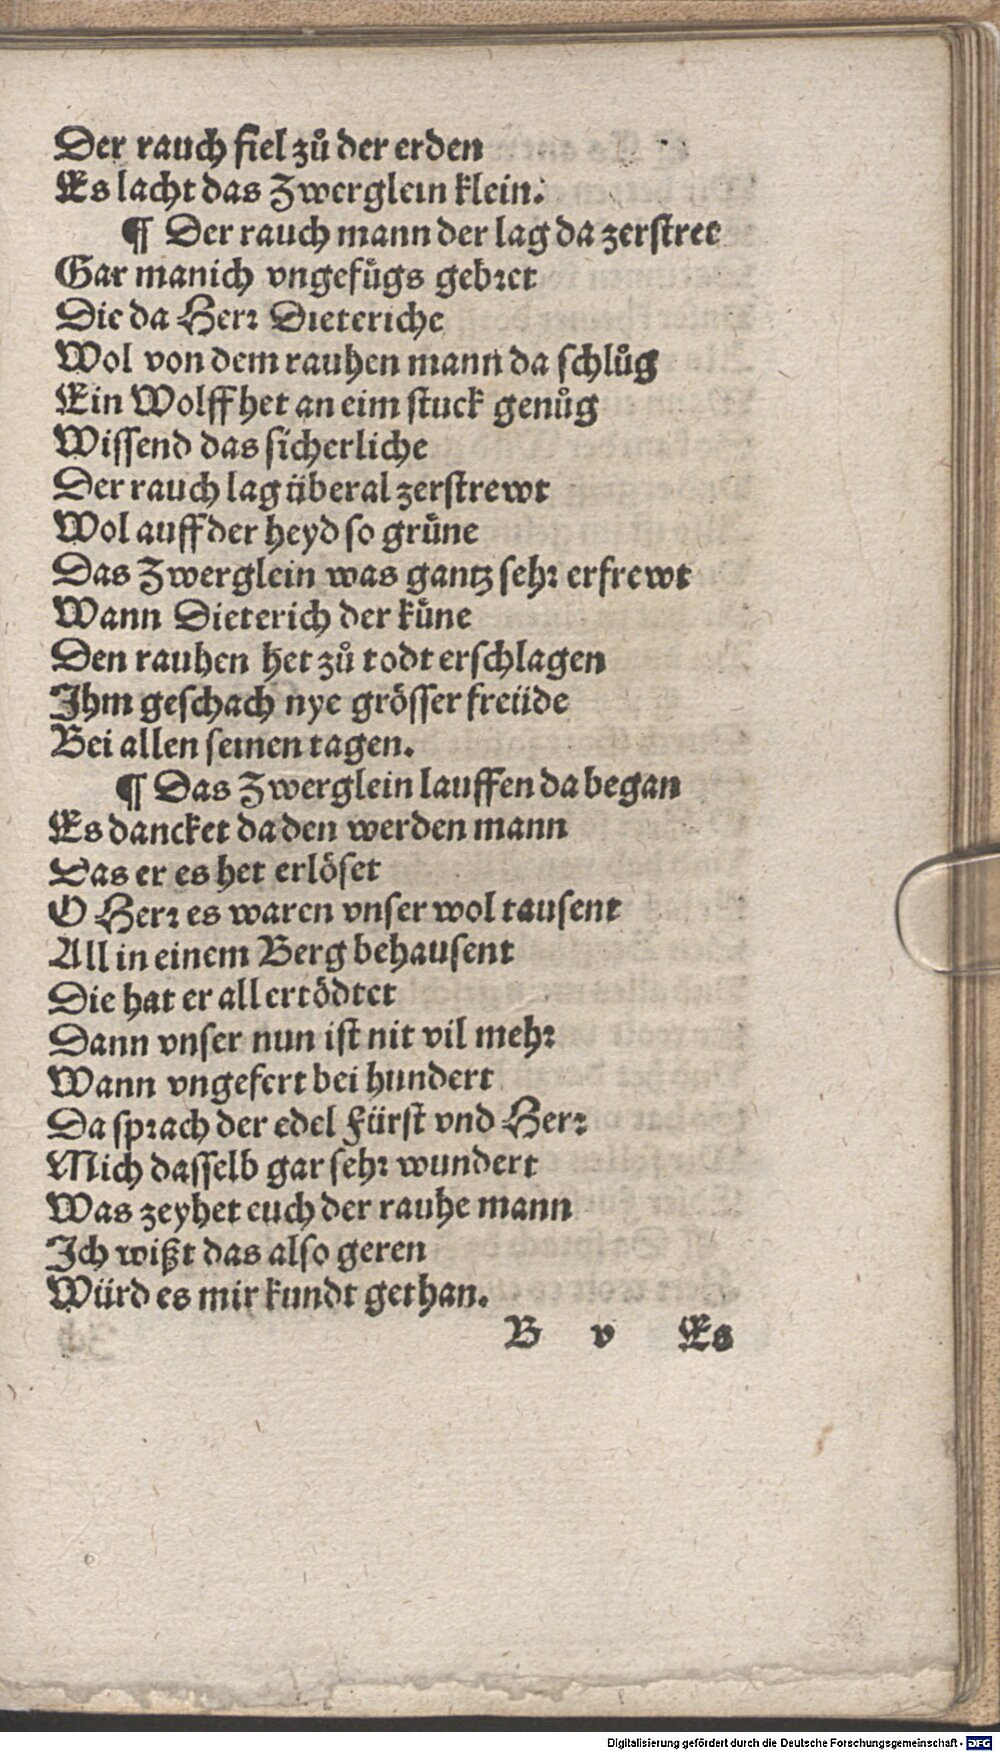 Der rauch fiel zů der erden
Es lacht das Zwerglein klein.
¶ Der rauch mann der lag da zerstret
Gar manich vngefůgs gebret
Die da Herr Dieteriche
Wol von dem rauhen mann da schlůg
Ein Wolff het an eim stuck genůg
Wissend das sicherliche
Der rauch lag überal zerstrewt
Wol auff der heyd so grüne
Das Zwerglein was gantz sehr erfrewt
Wann Dieterich der küne
Den rauhen het zů todt erschlagen
Ihm geschach nye grösser freüde
Bei allen seinen tagen.
¶ Das Zwerglein lauffen da began
Es dancket da den werden mann
Das er es het erlöset
O Herr es waren vnser wol tausent
All in einem Berg behausent
Die hat er all ertödtet
Dann vnser nun ist nit vil mehr
Wann vngefert bei hundert
Da sprach der edel Fürst vnd Herr
Mich dasselb gar sehr wundert
Was zeyhet euch der rauhe mann
Ich wißt das also geren
Würd es mir kundt gethan.
B v Es
Digitalisierung gefördert durch die Deutsche Forschungsgemeinschaft - DFG